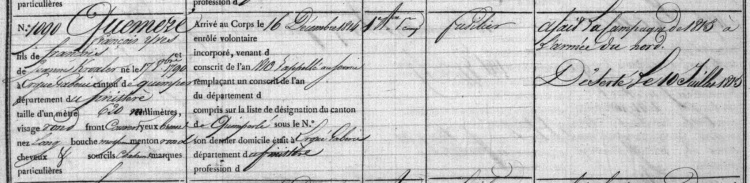 particulières
profession d
N.º 1090 Quemeré
François Yves
fils de
et de né le 17 8bre 1790
canton de quimper
département du finistère
taille d'un mètre 620 millimètres,
visage rond front yeux
nez Long bouche moyenne menton rond
cheveux & sourcils chatains marques
particulières
Arrivé au Corps le 16 Décembre 1814
enrôlé volontaire
incorporé, venant d
conscrit de l'an 1813
remplaçant un conscrit de l'an
du département d
compris sur la liste de désignation du canton
de Quimperlé sous le N.º
son dernier domicile était à Ergué Gabéric
département du finistère
profession d
fusilier
a fait la Campagne de 1815 à
l'armée du nord.
Déserté Le 10 Juillet 1815